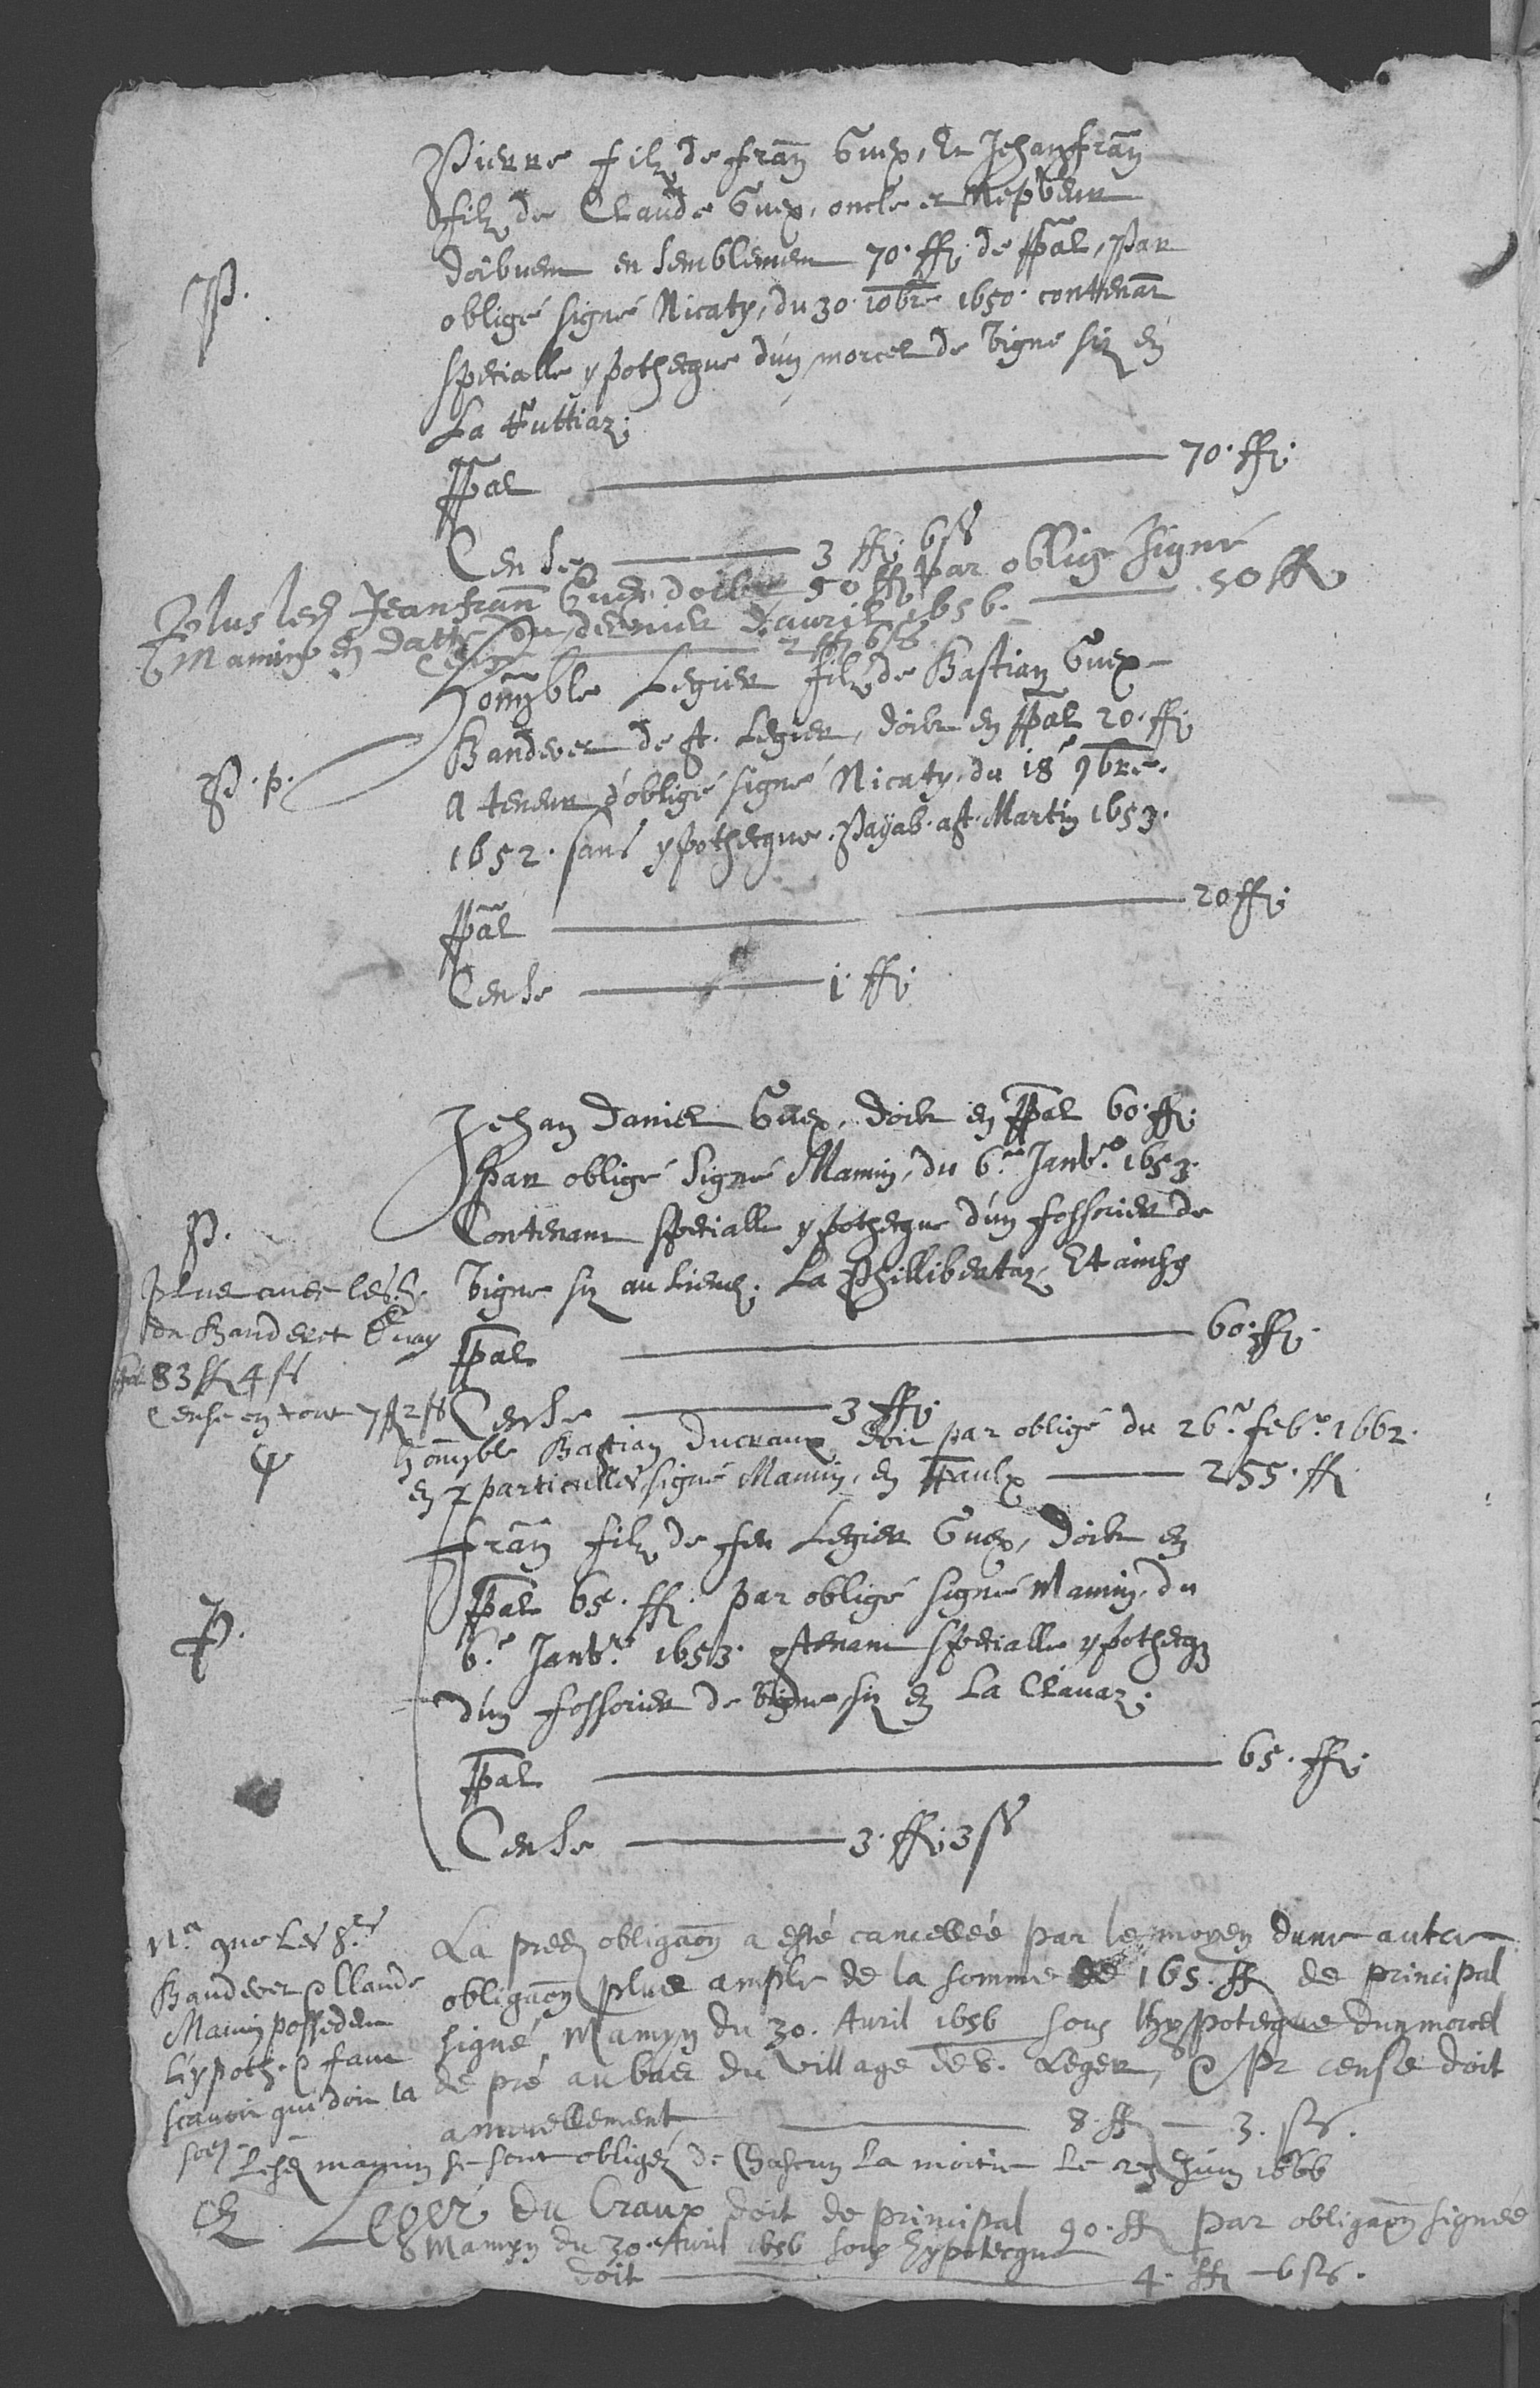 Pierre filz de fran Guex, Et Jehanfran
filz de Claude Guex, oncle et Nepveur
doibvent ensemblement 70. ff. de ppal, Par
P.
obligé signé Nicaty, du 30. 10bre 1650. contenant
specialle ypothecque d'un morcel de vigne siz en
La
ppal 70. ff.
Cense 3 ff. 6 ss
Plus led Jeanfran Guex doibt 50 ff par obligé signé
Mamin en datte du dernier d'avril 1656. 50 ff
Cense 2 ff 6 ss
Honnble Legier filz de Bastian Guex
Banderet de St. Legier, doibt en ppal 20. ff.
P. p.
A teneur d'obligé signé Nicaty, du 18e 9bre.
1652. sans ypothecque. Payab. a St. Martin 1653.
ppal 20 ff.
Cense 1. ff.
Jehan Daniel Guex, doibt en ppal 60. ff.
Par obligé signé Mamin, du 6e Janv. 1653.
Contenant specialle ypothecque d'un fossorier de
P.
vigne siz au lieud. La Phillibertaz, Et ainsy
plus avec les
du Banderet Guex
ppal 60. ff.
83 ff 4 ss
Cense en tout 7 ff 2 ss
Cense 3 ff.
honnble Bastian Ducraux doit par obligé du 26e feb. 1662.
en 2 particulles signé Mamin, en ppaulx 255. ff
fran filz de feu Legier Guex, doibt en
ppal 65. ff. par obligé signé Mamin, du
P.
6e Janv. 1653. contenant specialle ypothecq
d'un fossorier de vigne siz en La Clavaz.
ppal 65. ff.
Cense 3. ff. 3 ss
Na que les Srs
Banderet & Claude
Mamin possedent
l'ypoth. & faut
scavoir qui doit la
La pred obligaon a esté cancellée par le moyen d'une autre
obligaon plus ample de la somme de 165. ff de principal
signé Mamyn du 30. Avril 1656 sous lhypotecque d'un morcel
de pré au bas du village de S. Leger, & pr cense doit
annuellement 8. ff 3. ss.
Lesd mamin se sont obligéz de Chascun la moitie le 23 Juin 1666
Leger du Craux doit de principal 90. ff par obligaon signée
Mamyn du 30. Avril 1656 sous hypotecque
doit 4. ff 6 ss.